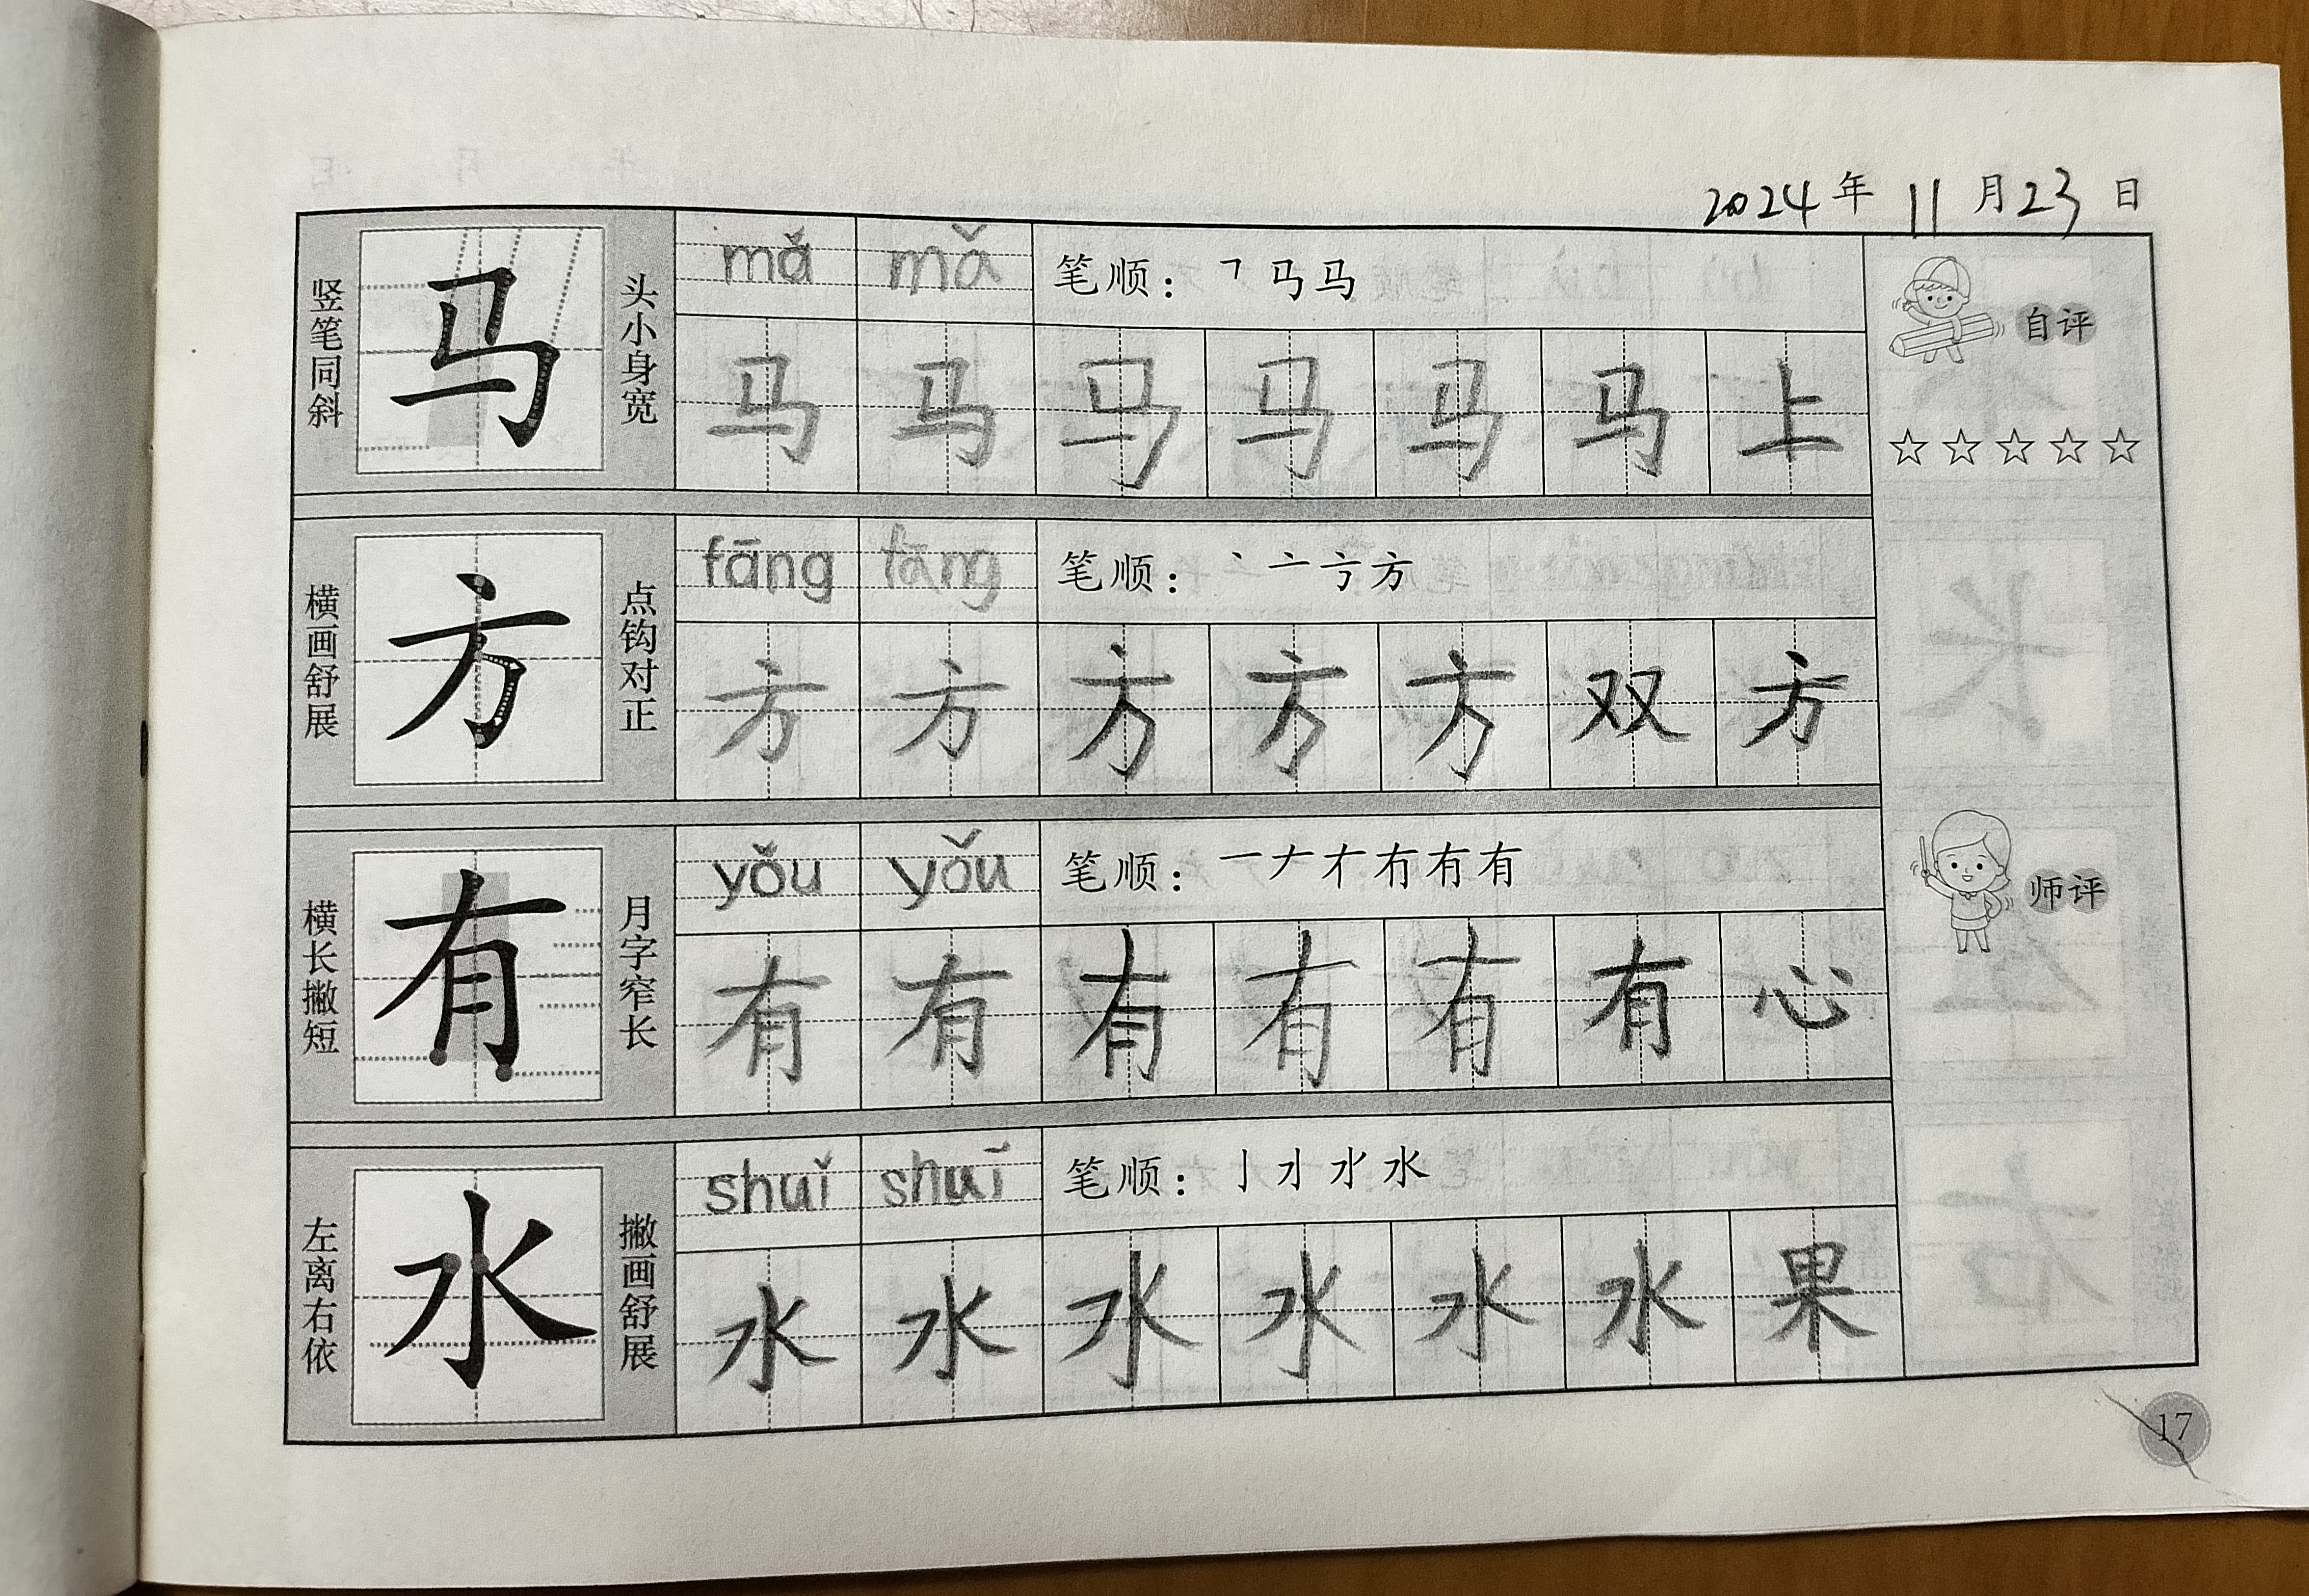 2024年11月23日
竖笔同斜
马
头小身宽
mǎ mǎ
笔顺：㇕马马
马马马马马马上
自评
☆☆☆☆☆
横画舒展
方
点钩对正
fāng fāng
笔顺：丶亠亐方
方方方方方双方
横长撇短
有
月字窄长
yǒu yǒu
笔顺：一𠂇冇有有
有有有有有有心
师评
左离右依
水
撇画舒展
shuǐ shuǐ
笔顺：亅水
水水水水水水果
17